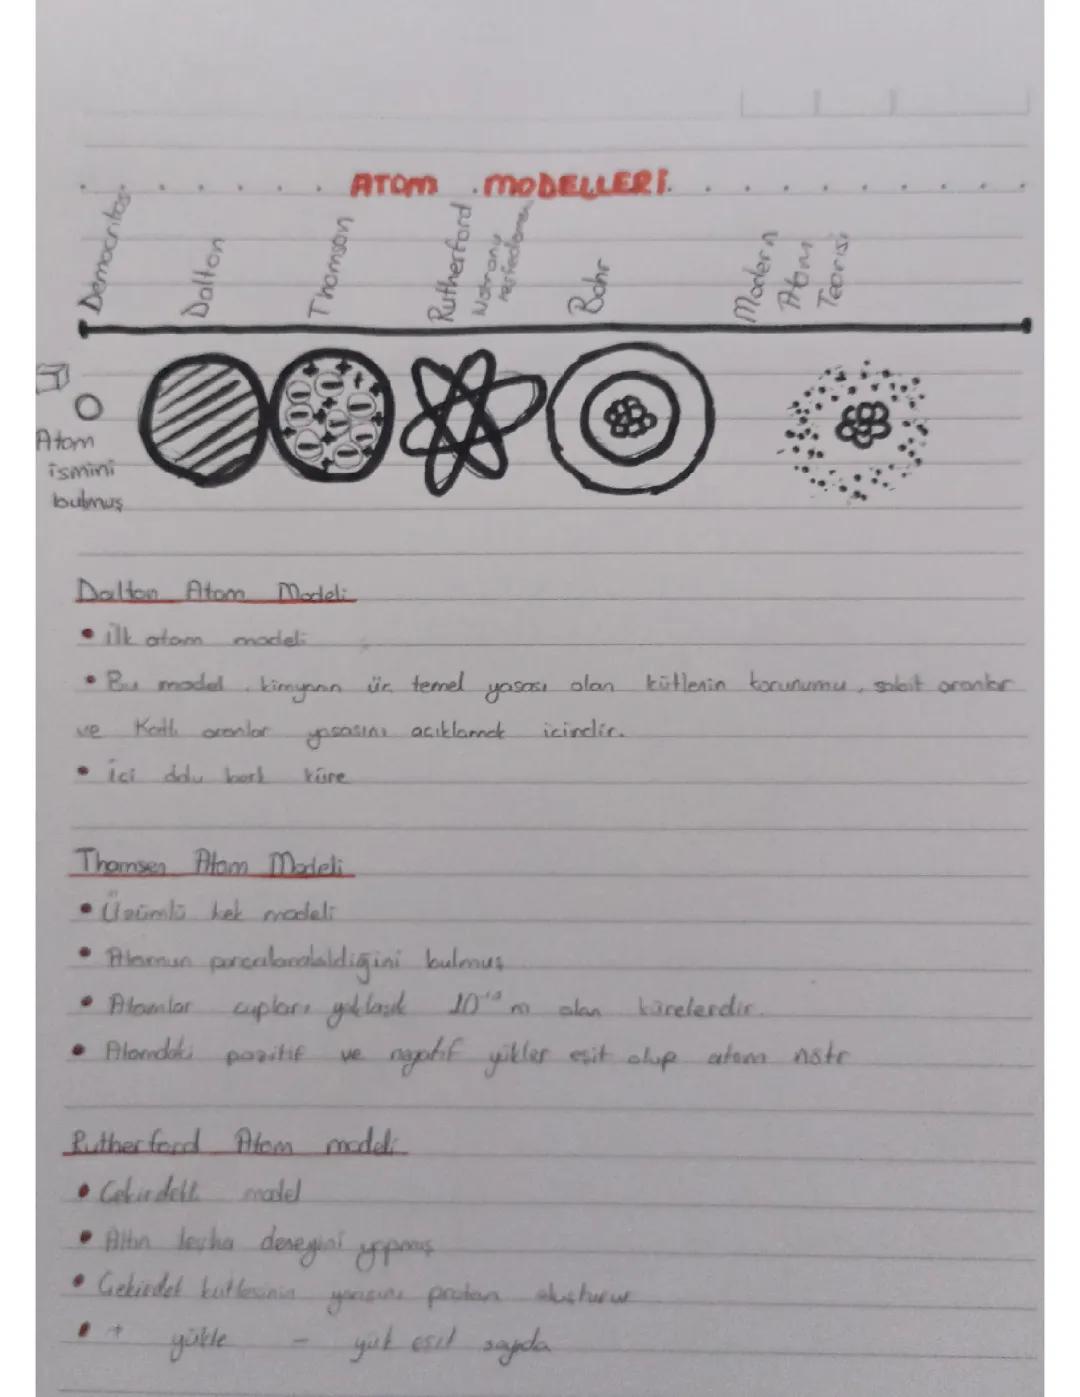 ATOM MODELLERİ
Democritos
Dalton
Thomson
Rutherford
Nötronu
Bohr
Modern
Atom
Teorisi
Atom
ismini
bulmuş
Dalton Atom Modeli
• ilk atom modeli
• Bu model, kimyanın üç temel yasası olan kütlenin korunumu, sabit oranlar
ve Katlı oranlar yasasını açıklamak içindir.
• içi dolu berk küre
Thomsen Atom Modeli
• Üzümlü kek modeli
• Atomun bulmuş
• Atomlar çapları yaklaşık m olan kürelerdir.
• Atomdaki pozitif ve negatif yükler eşit olup atom nötr
Rutherford Atom modeli
• Çekirdekli model
• Altın levha deneyini yapmış
• Çekirdek kütlesinin yarısını proton oluşturur
• + yükle - yük eşit sayıda